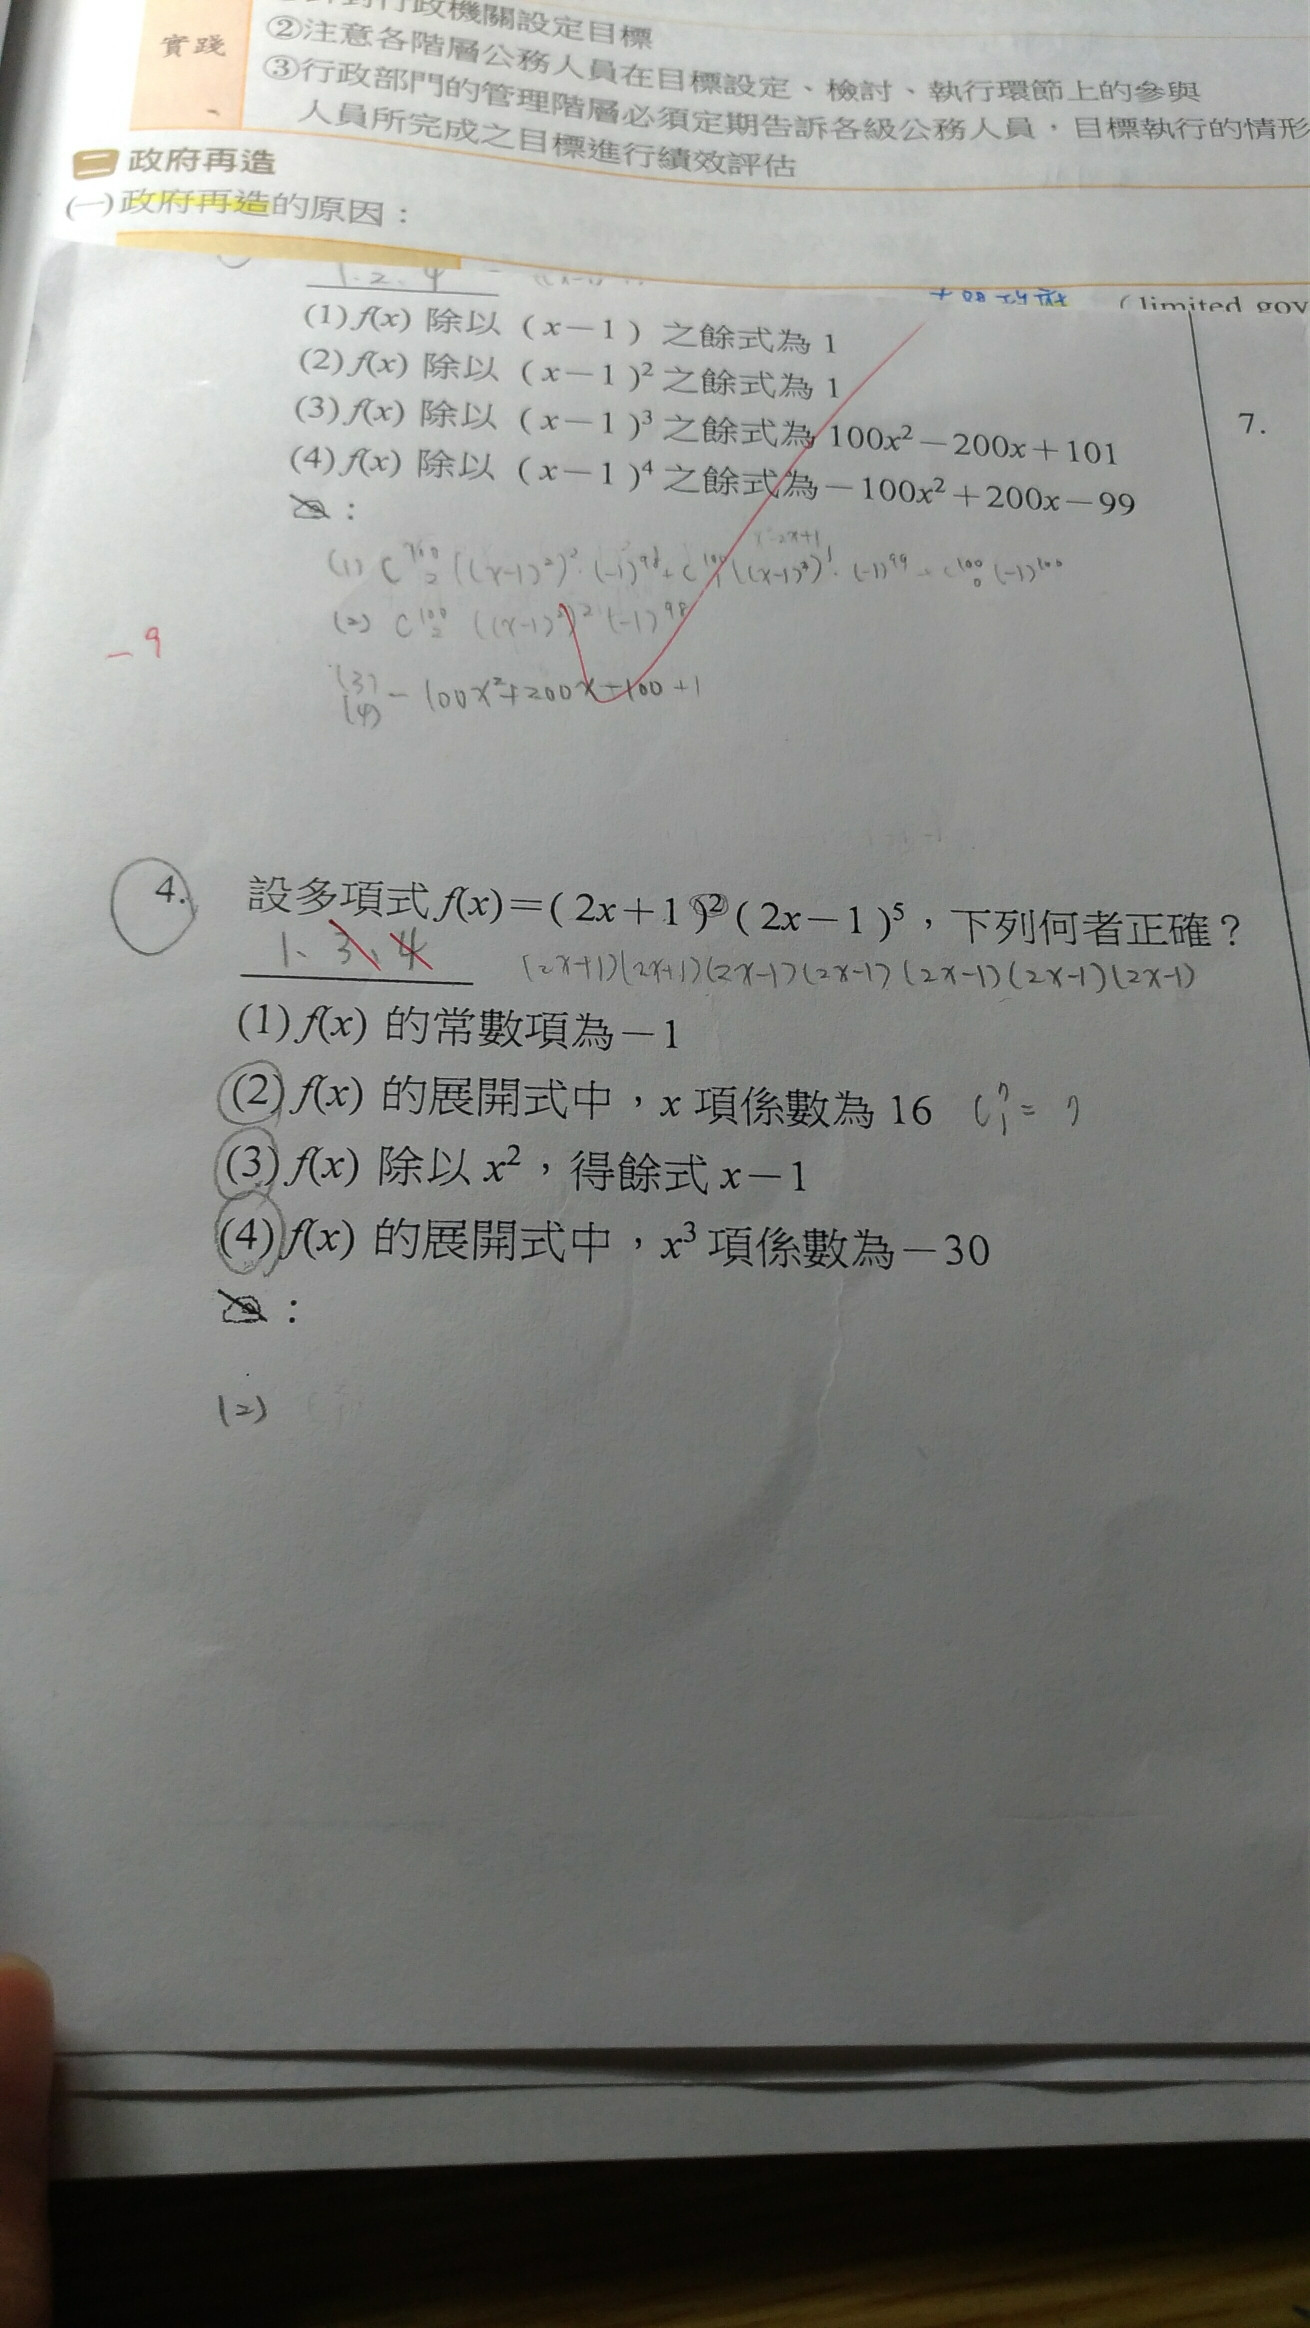 行政機關設定目標
實踐
②注意各階層公務人員在目標設定、檢討、執行環節上的參與
③行政部門的管理階層必須定期告訴各級公務人員，目標執行的情形
人員所完成之目標進行績效評估
二 政府再造
(一)政府再造的原因：
1.2.4
(limited gov
(1) f(x) 除以 (x－1) 之餘式為 1
(2) f(x) 除以 (x－1)² 之餘式為 1
(3) f(x) 除以 (x－1)³ 之餘式為 100x²－200x＋101
(4) f(x) 除以 (x－1)⁴ 之餘式為－100x²＋200x－99
7.
：
(2) C¹⁰⁰₂ ((x-1)²)² (-1)⁹⁸
－9
(3)
(4) - 100x²+200x-100+1
4. 設多項式 f(x)＝(2x＋1)²(2x－1)⁵，下列何者正確？
1、3、4
(2x+1)(2x+1)(2x-1)(2x-1)(2x-1)(2x-1)(2x-1)
(1) f(x) 的常數項為－1
(2) f(x) 的展開式中，x 項係數為 16
C⁷₁= 7
(3) f(x) 除以 x²，得餘式 x－1
(4) f(x) 的展開式中，x³ 項係數為－30
：
(2)